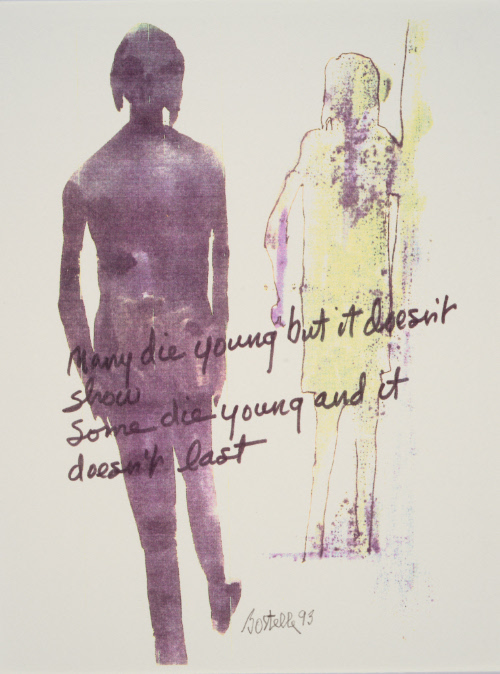 Many die young but it doesn't
show
Some die young and it
doesn't last
Bostelle 93